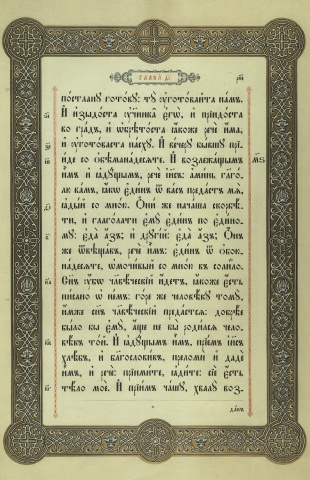 ГЛАВА̀ д҃і
постлану готову: ту ᲂу҆готовайта намъ.
И҆ и҆зыдоста ᲂу҆чн҃ка є҆гѡ̀, и҆ прїидоста
во градъ, и҆ ѡ҆брѣтоста ꙗ҆коже речѐ и҆ма,
и҆ ᲂу҆готоваста пасху. И҆ вечеру бывшу прї-
иде со ѻ҆бѣманадесѧте. И҆ возлежащымъ
и҆мъ и҆ ꙗ҆дущымъ, речѐ і҆и҃съ: а҆минь гл҃ю
вамъ, ꙗ҆кѡ є҆динъ ѿ васъ предастъ мѧ,
ꙗ҆дый со мною. Ѻ҆ни же начаша скорбѣ-
ти, и҆ глаголати є҆му̀ є҆динъ по є҆дино-
му: є҆да̀ а҆зъ; и҆ другі́й: є҆да̀ а҆зъ; Ѻ҆нъ
же ѿвѣщавъ, речѐ и҆мъ: є҆динъ ѿ ѻ҆бою-
надесѧте, ѡ҆мочивый со мною въ солило.
Сн҃ъ ᲂу҆бѡ чл҃вѣческїй и҆детъ, ꙗ҆коже є҆сть
писано ѡ҆ немъ: горе же человѣку тому,
и҆мже сн҃ъ чл҃вѣческїй предастсѧ: добрѣе
было бы є҆му̀, а҆ще не бы родилсѧ чело-
вѣкъ той. И҆ ꙗ҆дущымъ и҆мъ, прїемъ і҆и҃съ
хлѣбъ, и҆ благословивъ, преломѝ и҆ дадѐ
и҆мъ, и҆ речѐ: прїимите, ꙗ҆дите: сїѐ є҆сть
тѣло моѐ. И҆ прїимъ чашу, хвалу воз-
давъ